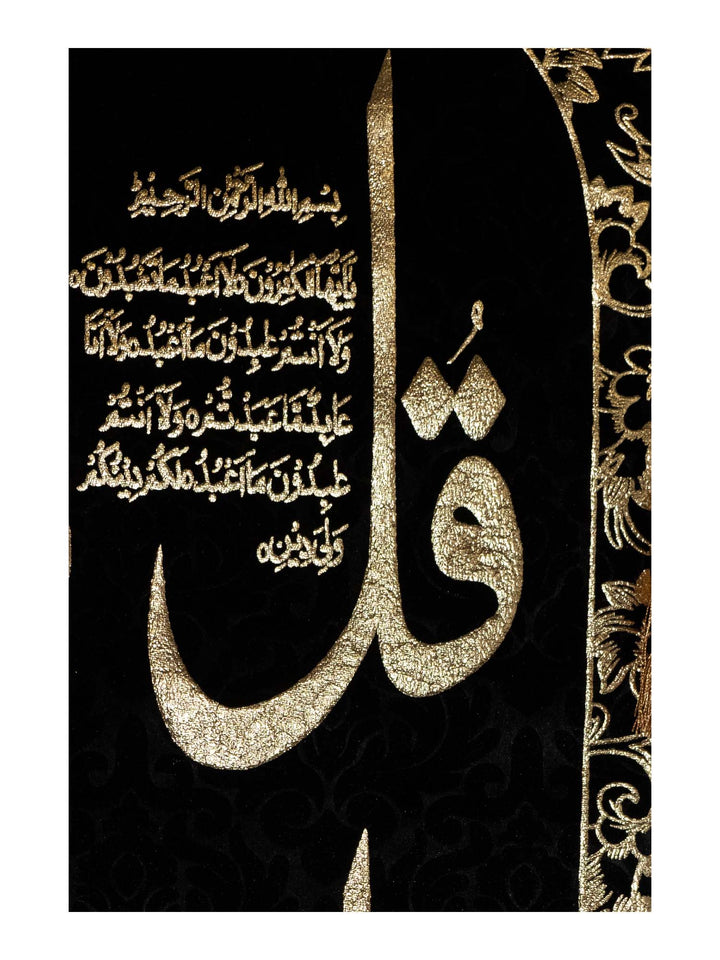 قُلْ
بِسْمِ اللهِ الرَّحْمٰنِ الرَّحِيْمِ
يٰاَيُّهَا الْكٰفِرُوْنَ ٥ لَا اَعْبُدُ مَا تَعْبُدُوْنَ ٥
وَلَا اَنْتُمْ عٰبِدُوْنَ مَا اَعْبُدُ ٥ وَلَا اَنَا
عَابِدٌ مَّا عَبَدْتُّمْ ٥ وَلَا اَنْتُمْ
عٰبِدُوْنَ مَا اَعْبُدُ ٥ لَكُمْ دِيْنُكُمْ
وَلِيَ دِيْنِ ٥